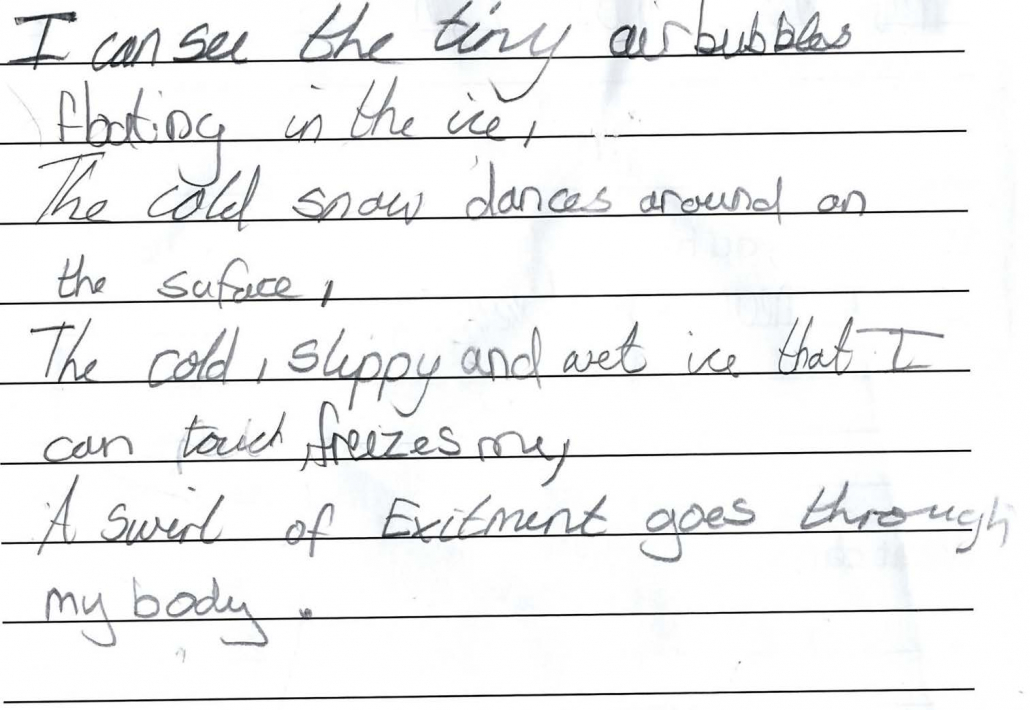 I can see the tiny air bubbles
floating in the ice,
The cold snow dances around on
the suface,
The cold, slippy and wet ice that I
can touch freezes me,
A swirl of Exitment goes through
my body.